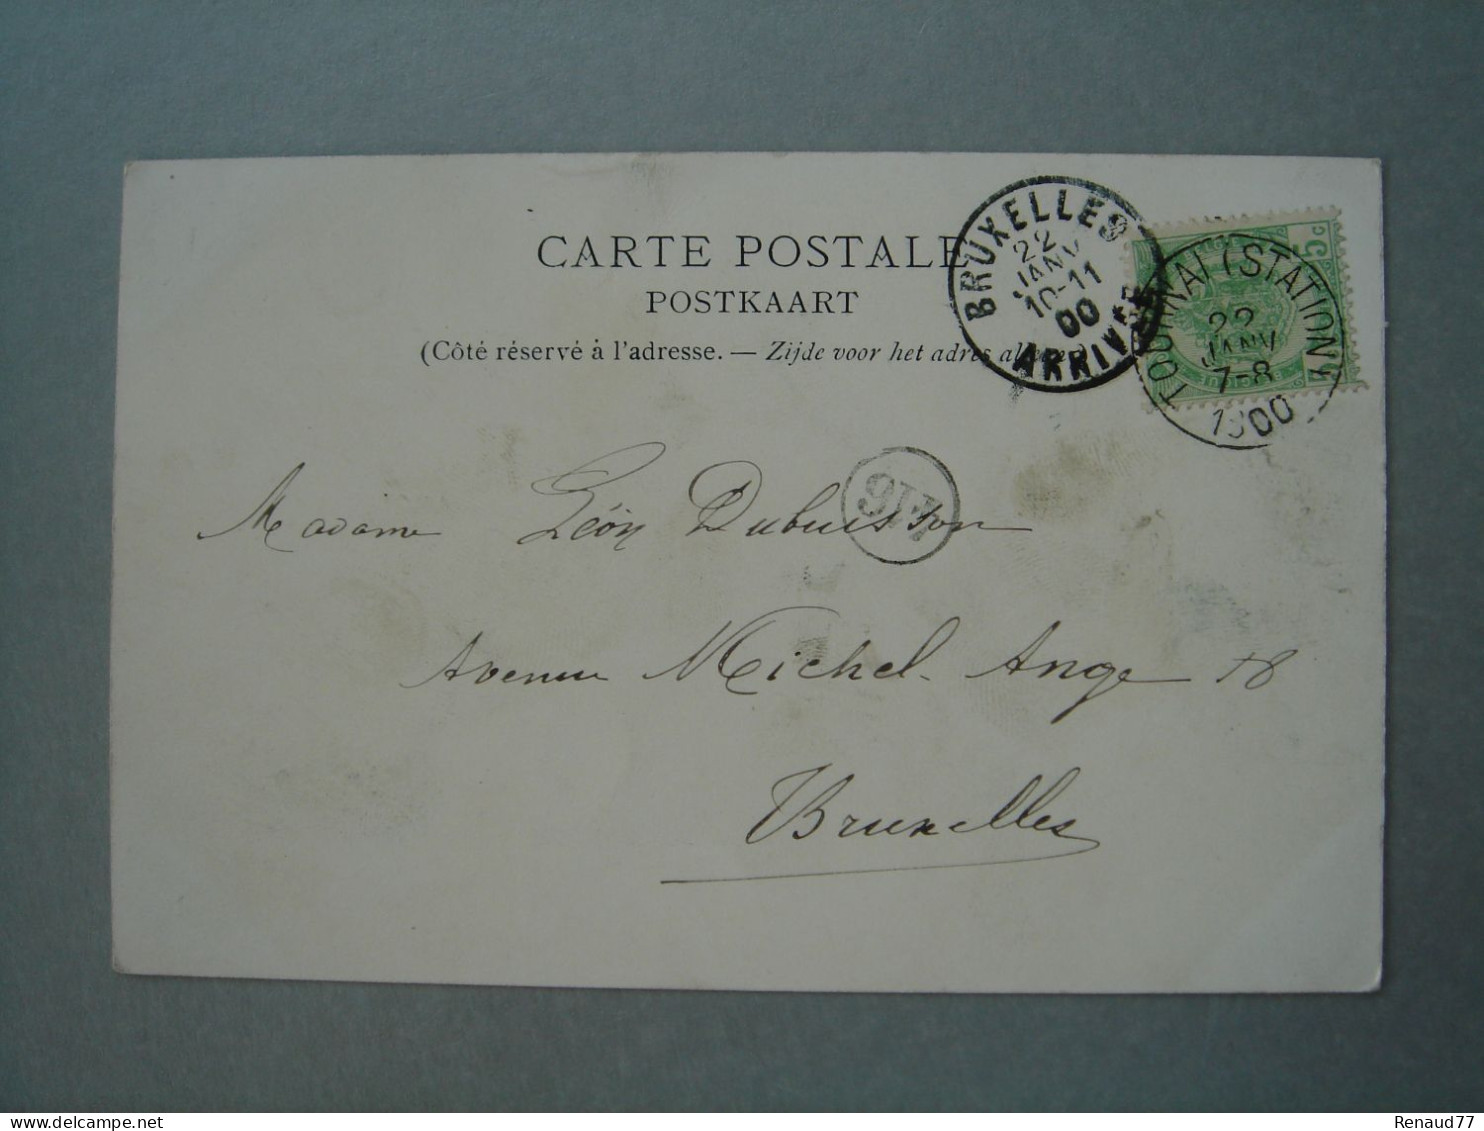 CARTE POSTALE
POSTKAART
(Côté réservé à l'adresse. — Zijde voor het adres
BRUXELLES
22
JANV
10-11
00
ARRIVEE
5c
TOURNAI (STATION)
22
JANV
7-8
1900
Madame Léon Dubuisson
Avenue Michel-Ange 18
Bruxelles
Renaud77